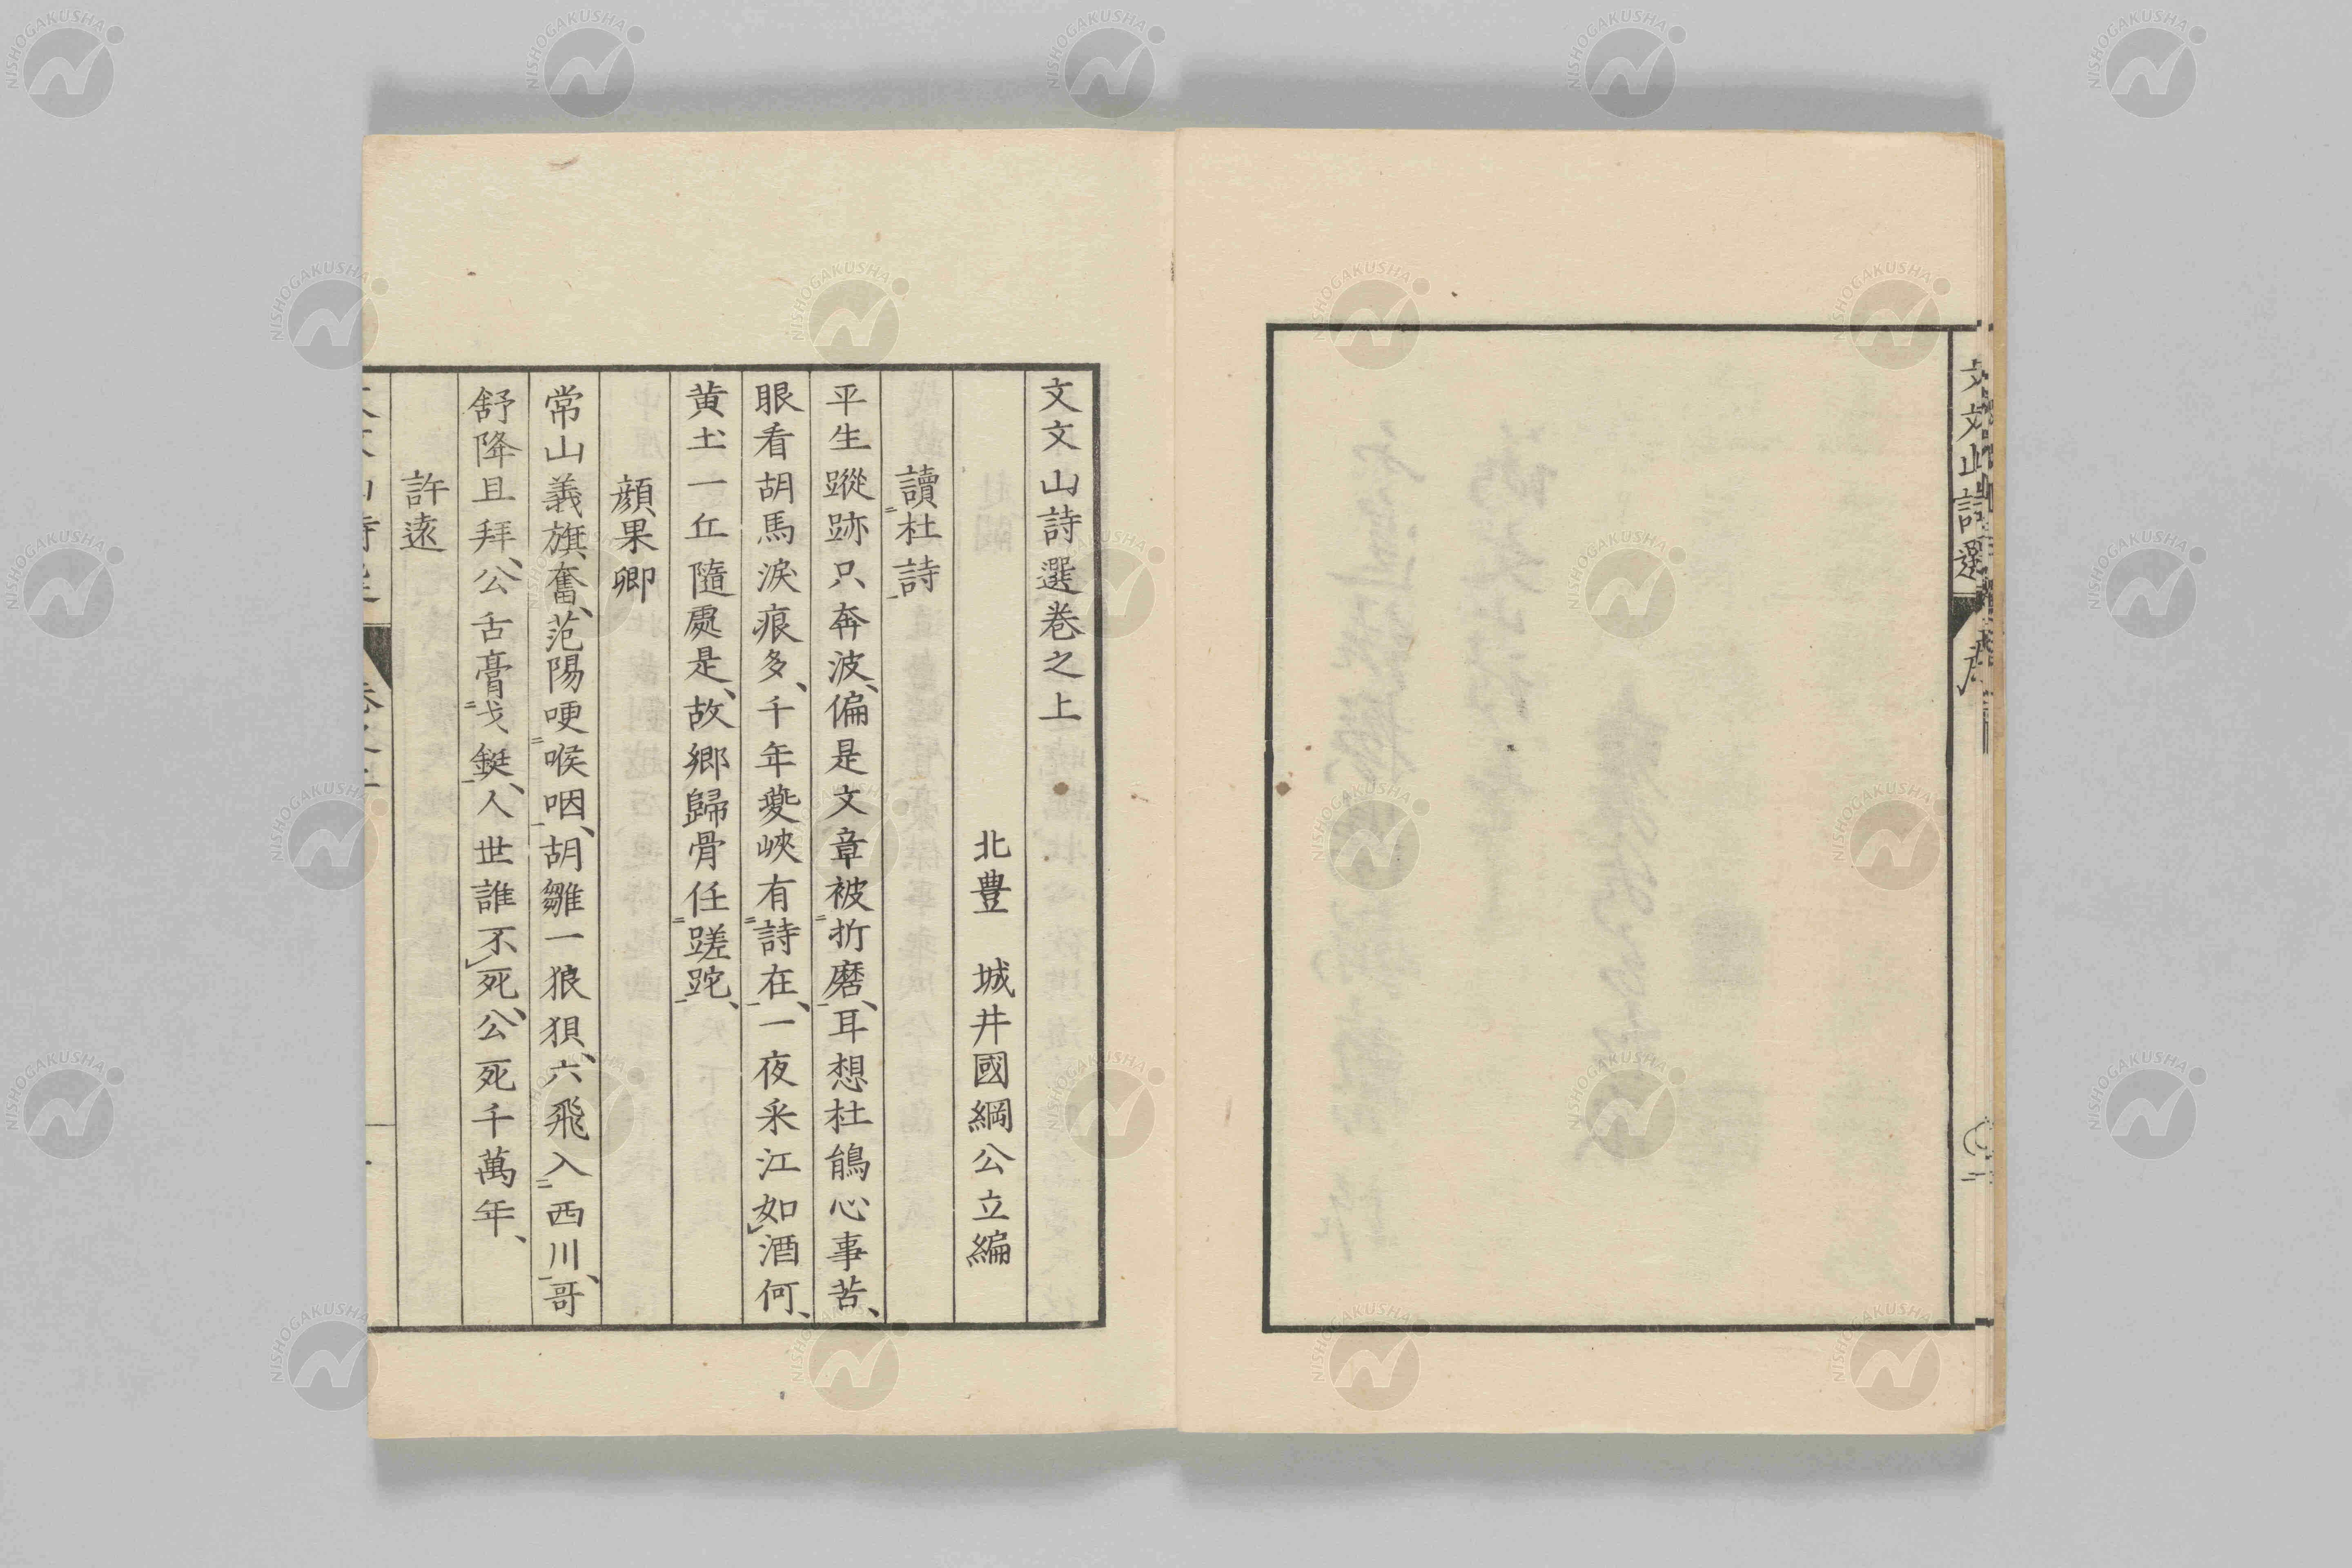 文文山詩選
文文山詩選卷之上
北豊　城井國綱公立編
讀杜詩
平生蹤跡只奔波、偏是文章被折磨、耳想杜鵑心事苦、
眼看胡馬淚痕多、千年夔峽有詩在、一夜采江如酒何、
黄土一丘隨處是、故鄉歸骨任蹉跎、
顔果卿
常山義旗奮、范陽哽喉咽、胡雛一狼狽、六飛入西川、哥
舒降且拜、公舌膏戈鋋、人世誰不死、公死千萬年、
許遠